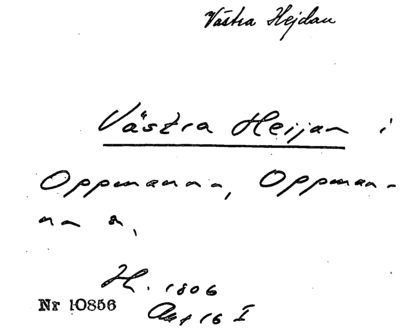 Västra Hejdan
Västra Heijan i
Oppmanna, Oppman-
na s,
H. 1806
Nr 10856
16 I